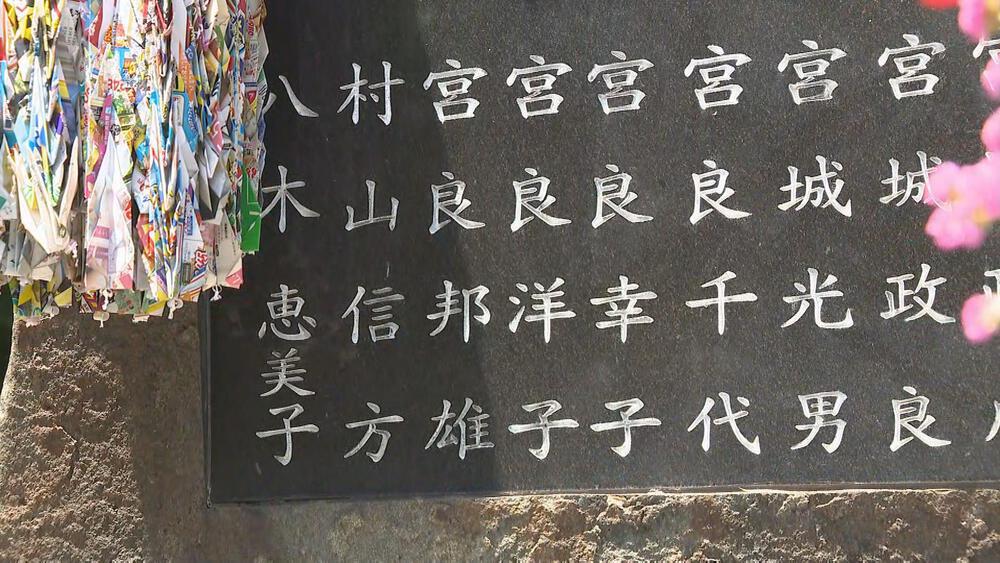 宮城政良
宮城光男
宮良千代
宮良幸子
宮良洋子
宮良邦雄
村山信方
八木恵美子